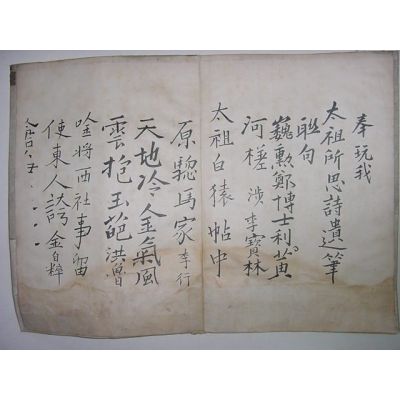 奉玩我
太祖所思詩遺筆
聯句
巍勲鄭博士利黃
河槎漈李寶林
太祖白猿帖中
原驄馬家李行
天地冷金氣風
雲抱玉葩洪曾
哈將西社事留
使東人誇金自粹